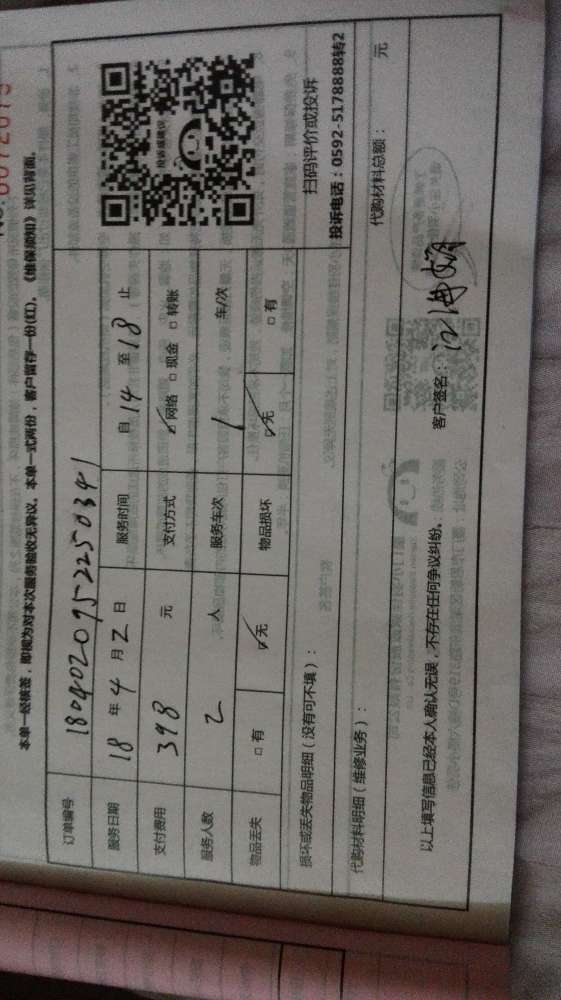 本单一经核签，即视为对本次服务验收无异议。本单一式两份，客户留存一份(红)。《维保须知》详见背面。
订单编号 1804020952250341
服务日期 18 年 4 月 2 日 服务时间 自 14 至 18 止
支付费用 398 元 支付方式 ☑网络 □现金 □转账
服务人数 2 人 服务车次 1 车/次
物品丢失 □有 ☑无 物品损坏 ☑无 □有
投诉或建议
扫码评价或投诉
投诉电话：0592-5178888转2
损坏或丢失物品明细（没有可不填）：
代购材料明细（维修业务）： 代购材料总额： 元
以上填写信息已经本人确认无误，不存在任何争议纠纷。 客户签名：江海